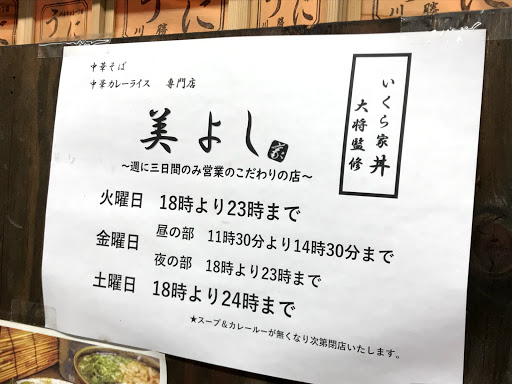 うに
勝
川
うに
うに
中華そば
中華カレーライス 専門店
美よし
～週に三日間のみ営業のこだわりの店～
いくら家丼
大将監修
火曜日 18時より23時まで
金曜日 昼の部 11時30分より14時30分まで
夜の部 18時より23時まで
土曜日 18時より24時まで
★スープ＆カレールーが無くなり次第閉店いたします。